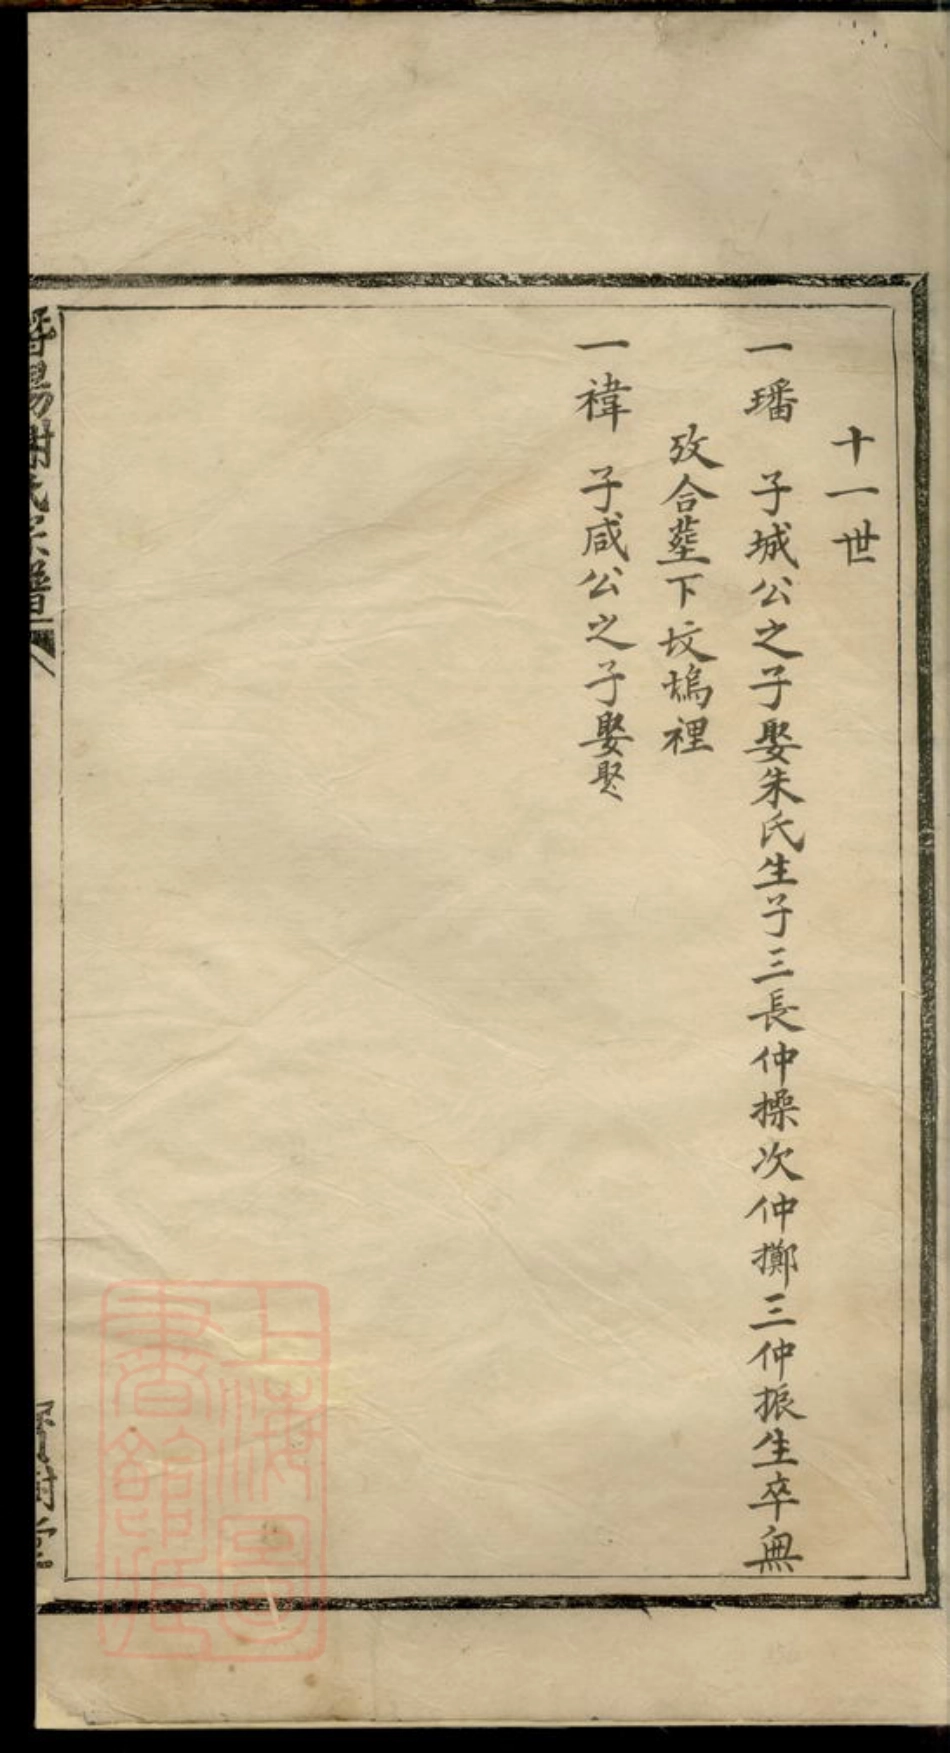 十一世
一璠 子城公之子娶朱氏生子三長仲操次仲擲三仲振生卒無
攷合塟下坟塢裡
一禕 子咸公之子娶娶
暨陽謝氏宗譜
寶樹堂
上海圖
書館藏